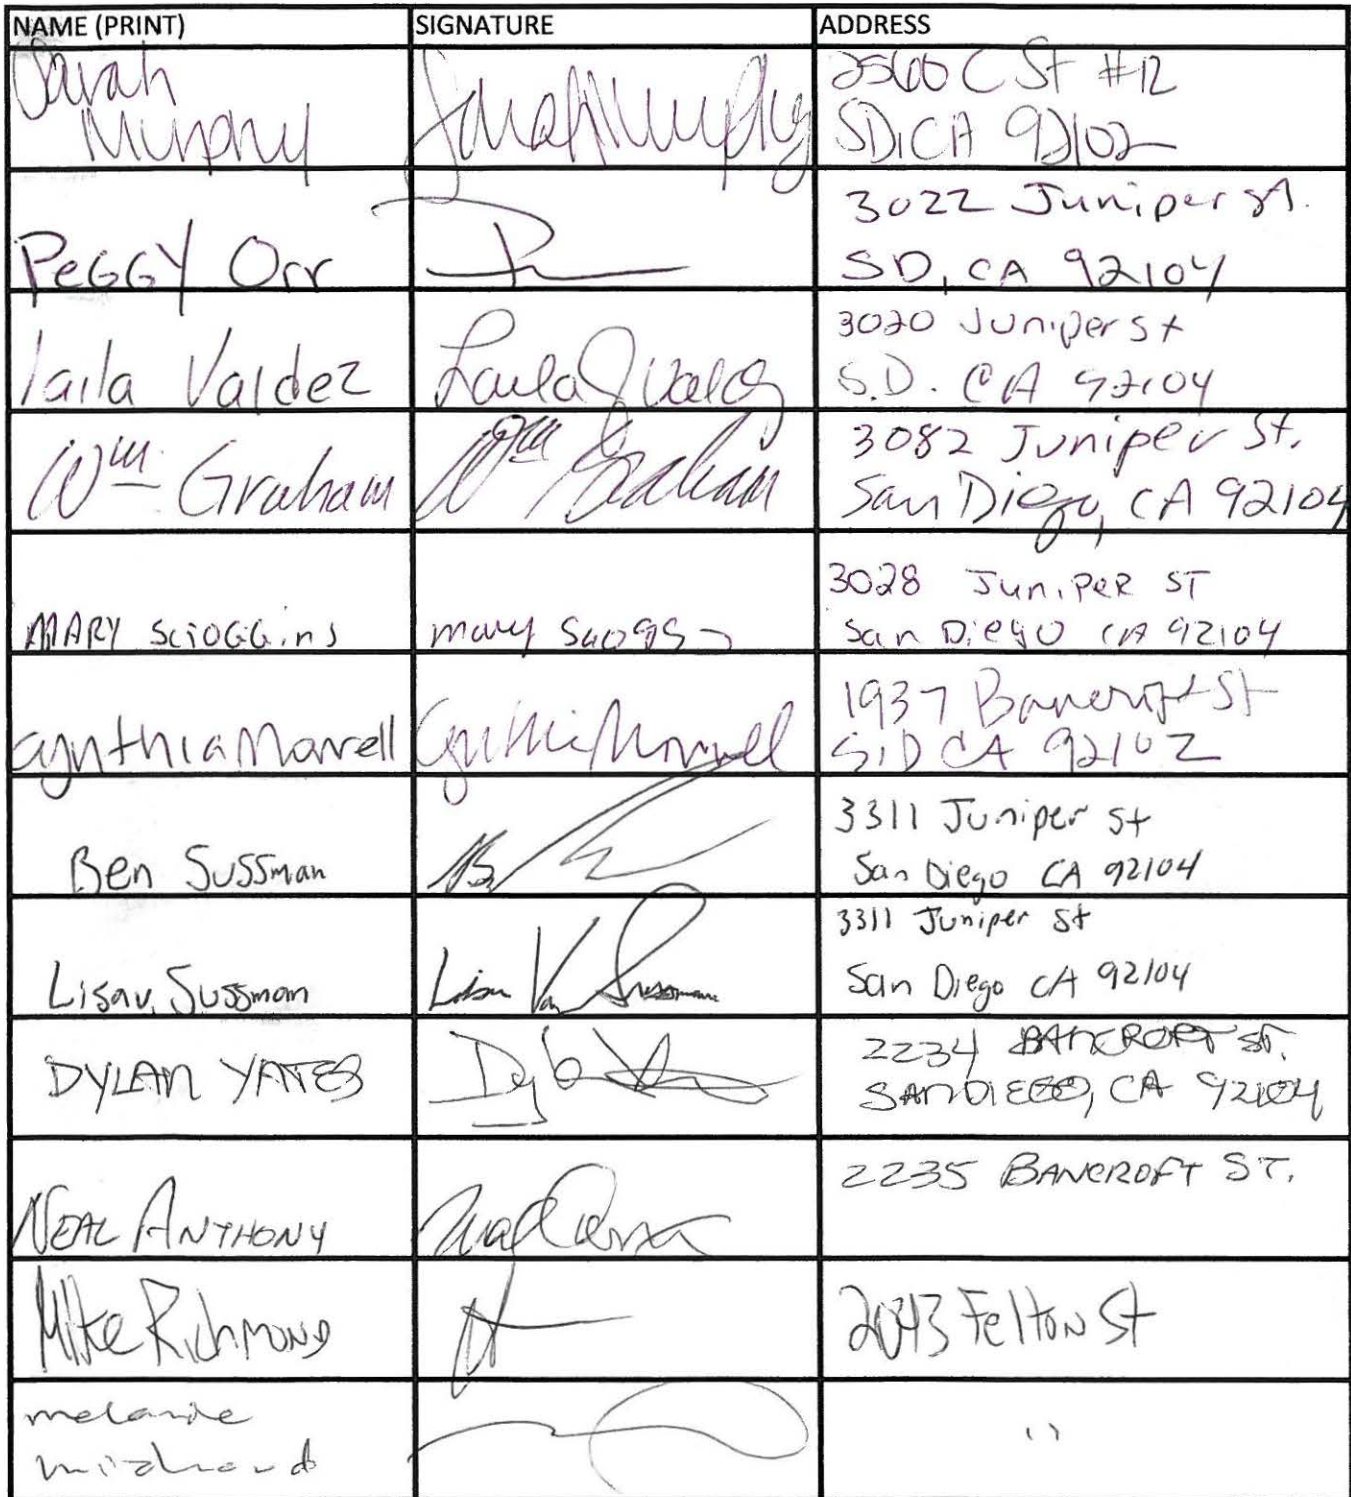 NAME (PRINT) SIGNATURE ADDRESS
Sarah Murphy Sarah Murphy 2560 C St #12
SD, CA 92102
PeGGY Orr 3022 Juniper St.
SD, CA 92104
laila Valdez Laila J Valdez 3020 Juniper st
S.D. CA 92104
Wm Graham Wm Graham 3082 Juniper St.
San Diego, CA 92104
MARY scioGGins mary 3028 JuniPER ST
San Diego CA 92104
Cynthia Marrell Cynthia Marrell 1937 Bancroft St
S,D CA 92102
Ben Sussman 3311 Juniper St
San Diego CA 92104
Lisa V. Sussman Lisa Van Sussman 3311 Juniper St
San Diego CA 92104
DYLAN YATES Dylan 2234 BANCROFT ST.
SAN DIEGO, CA 92104
NEAL ANTHONY 2235 BANCROFT ST.
Mike Richmond 2043 Felton St
melanie "